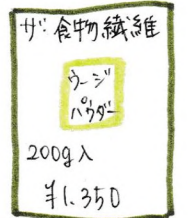 ザ・食物繊維
ウージ
パウダー
200g入
¥1,350